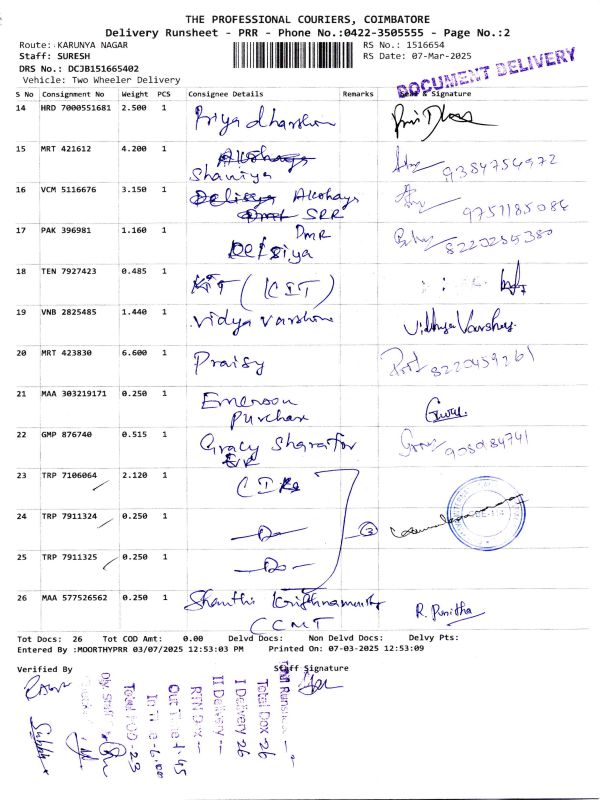 THE PROFESSIONAL COURIERS, COIMBATORE
Delivery Runsheet - PRR - Phone No.:0422-3505555 - Page No.:2
Route: KARUNYA NAGAR RS No.: 1516654
Staff: SURESH RS Date: 07-Mar-2025
DRS No.: DCJB151665402
Vehicle: Two Wheeler Delivery
DOCUMENT DELIVERY
S No Consignment No Weight PCS Consignee Details Remarks Seal & Signature
14 HRD 7000551681 2.500 1 Priyadharshini
15 MRT 421612 4.200 1 Akshaya 9384754972
Shaniya
16 VCM 5116676 3.150 1 Delisya Akshaya
SRR 9751185086
17 PAK 396981 1.160 1 DMR
Delsiya 8220255380
18 TEN 7927423 0.485 1 KIT (CIT)
19 VNB 2825485 1.440 1 Vidya Varshini Vidhya Varshay
20 MRT 423830 6.600 1 Praisy 8220459261
21 MAA 303219171 0.250 1 Emerson
Purchase
22 GMP 876740 0.515 1 Gracy
23 TRP 7106064 2.120 1
24 TRP 7911324 0.250 1 — Do — 3
25 TRP 7911325 0.250 1 — Do —
26 MAA 577526562 0.250 1 Shanthi Krishnamurthy R. Punitha
CCMT
Tot Docs: 26 Tot COD Amt: 0.00 Delvd Docs: Non Delvd Docs: Delvy Pts:
Entered By :MOORTHYPRR 03/07/2025 12:53:03 PM Printed On: 07-03-2025 12:53:09
Verified By Staff Signature
Total Dox - 26
I Delivery 26
II Delivery —
RTN Dox —
Out Time 1.45
In Time 6.00
Total POD - 23